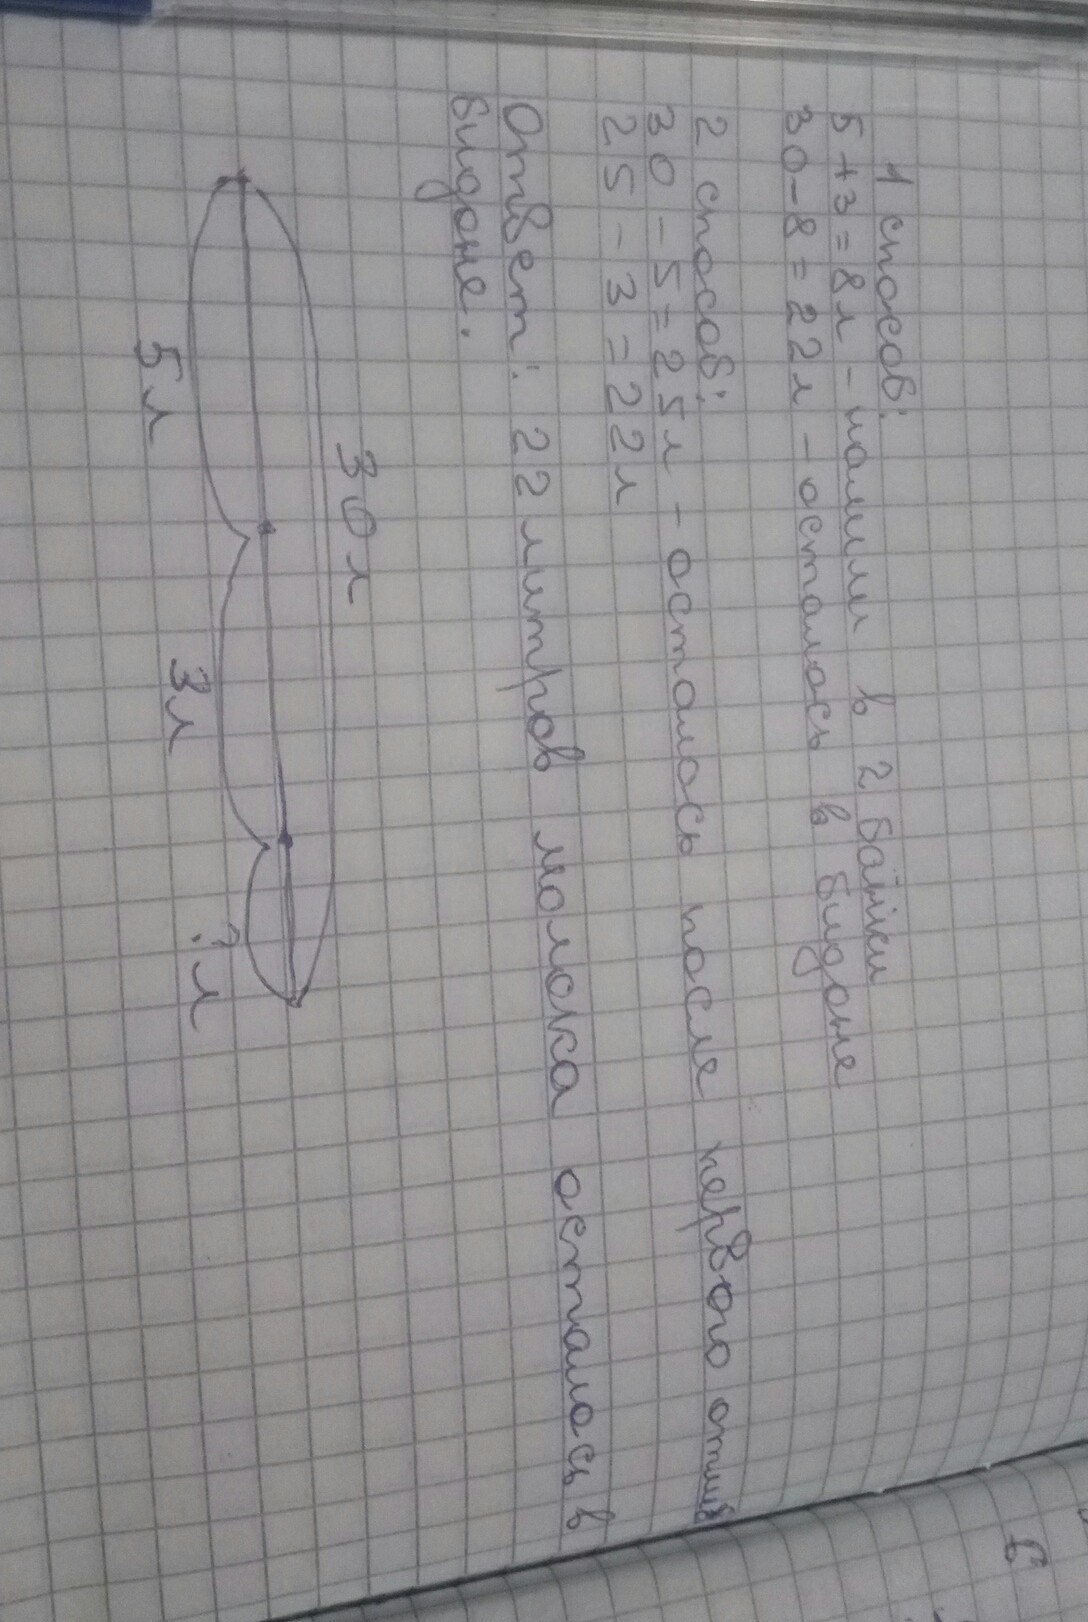 1 способ:
5+3=8л - налили в 2 банки
30-8=22л - осталось в бидоне
2 способ:
30-5=25л - осталось после первого
25-3=22л
Ответ: 22 литров молока осталось в
бидоне.
30 л
5 л
3 л
? л
6